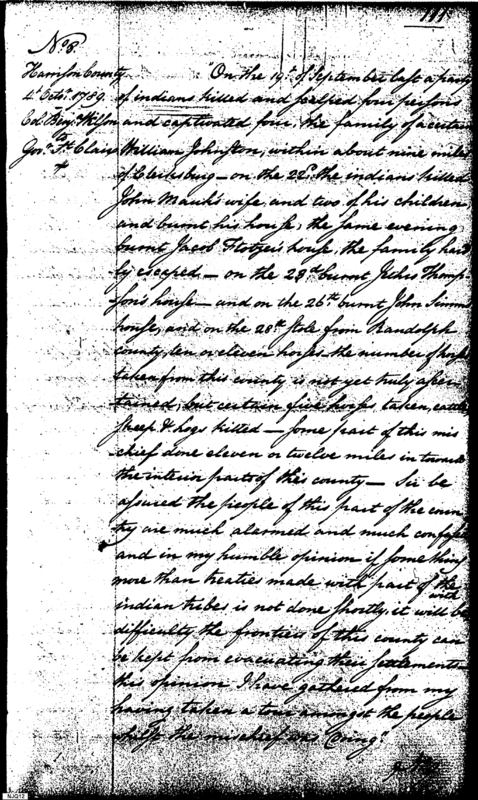 111
No 8.
Harrison County
4th Octr. 1789.
Col. Benjn. Wilson
to
Govr. St. Clair
"On the 19th of September last a party
of indians killed and scalped four persons
and captivated four, the family of a certain
William Johnston, within about nine miles
of Clerksburg — on the 22d, the indians killed
John Mauk's wife, and two of his children,
and burnt his house; the same evening
burnt Jacob Flotzer's house, the family hard
ly escaped, — on the 23rd burnt Jethro Thomp
son's house — and on the 26th burnt John Simms
house, and on the 28th stole from Randolph
county, ten or eleven horses the number of horses
taken from this county is not yet truly ascer
tained; but certain five horses taken, cattle
sheep & hogs killed — some part of this mis
chief done eleven or twelve miles in towards
the interior parts of this county — Sir be
assured the people of this part of the coun
try are much alarmed and much confused
and in my humble opinion if something
more than treaties made with part of the
with
indian tribes is not done shortly, it will be
difficulty the frontiers of this county can
be kept from evacuating their settlements —
this opinion I have gathered from my
having taken a tour amongst the people
whilst the mischief was doing."